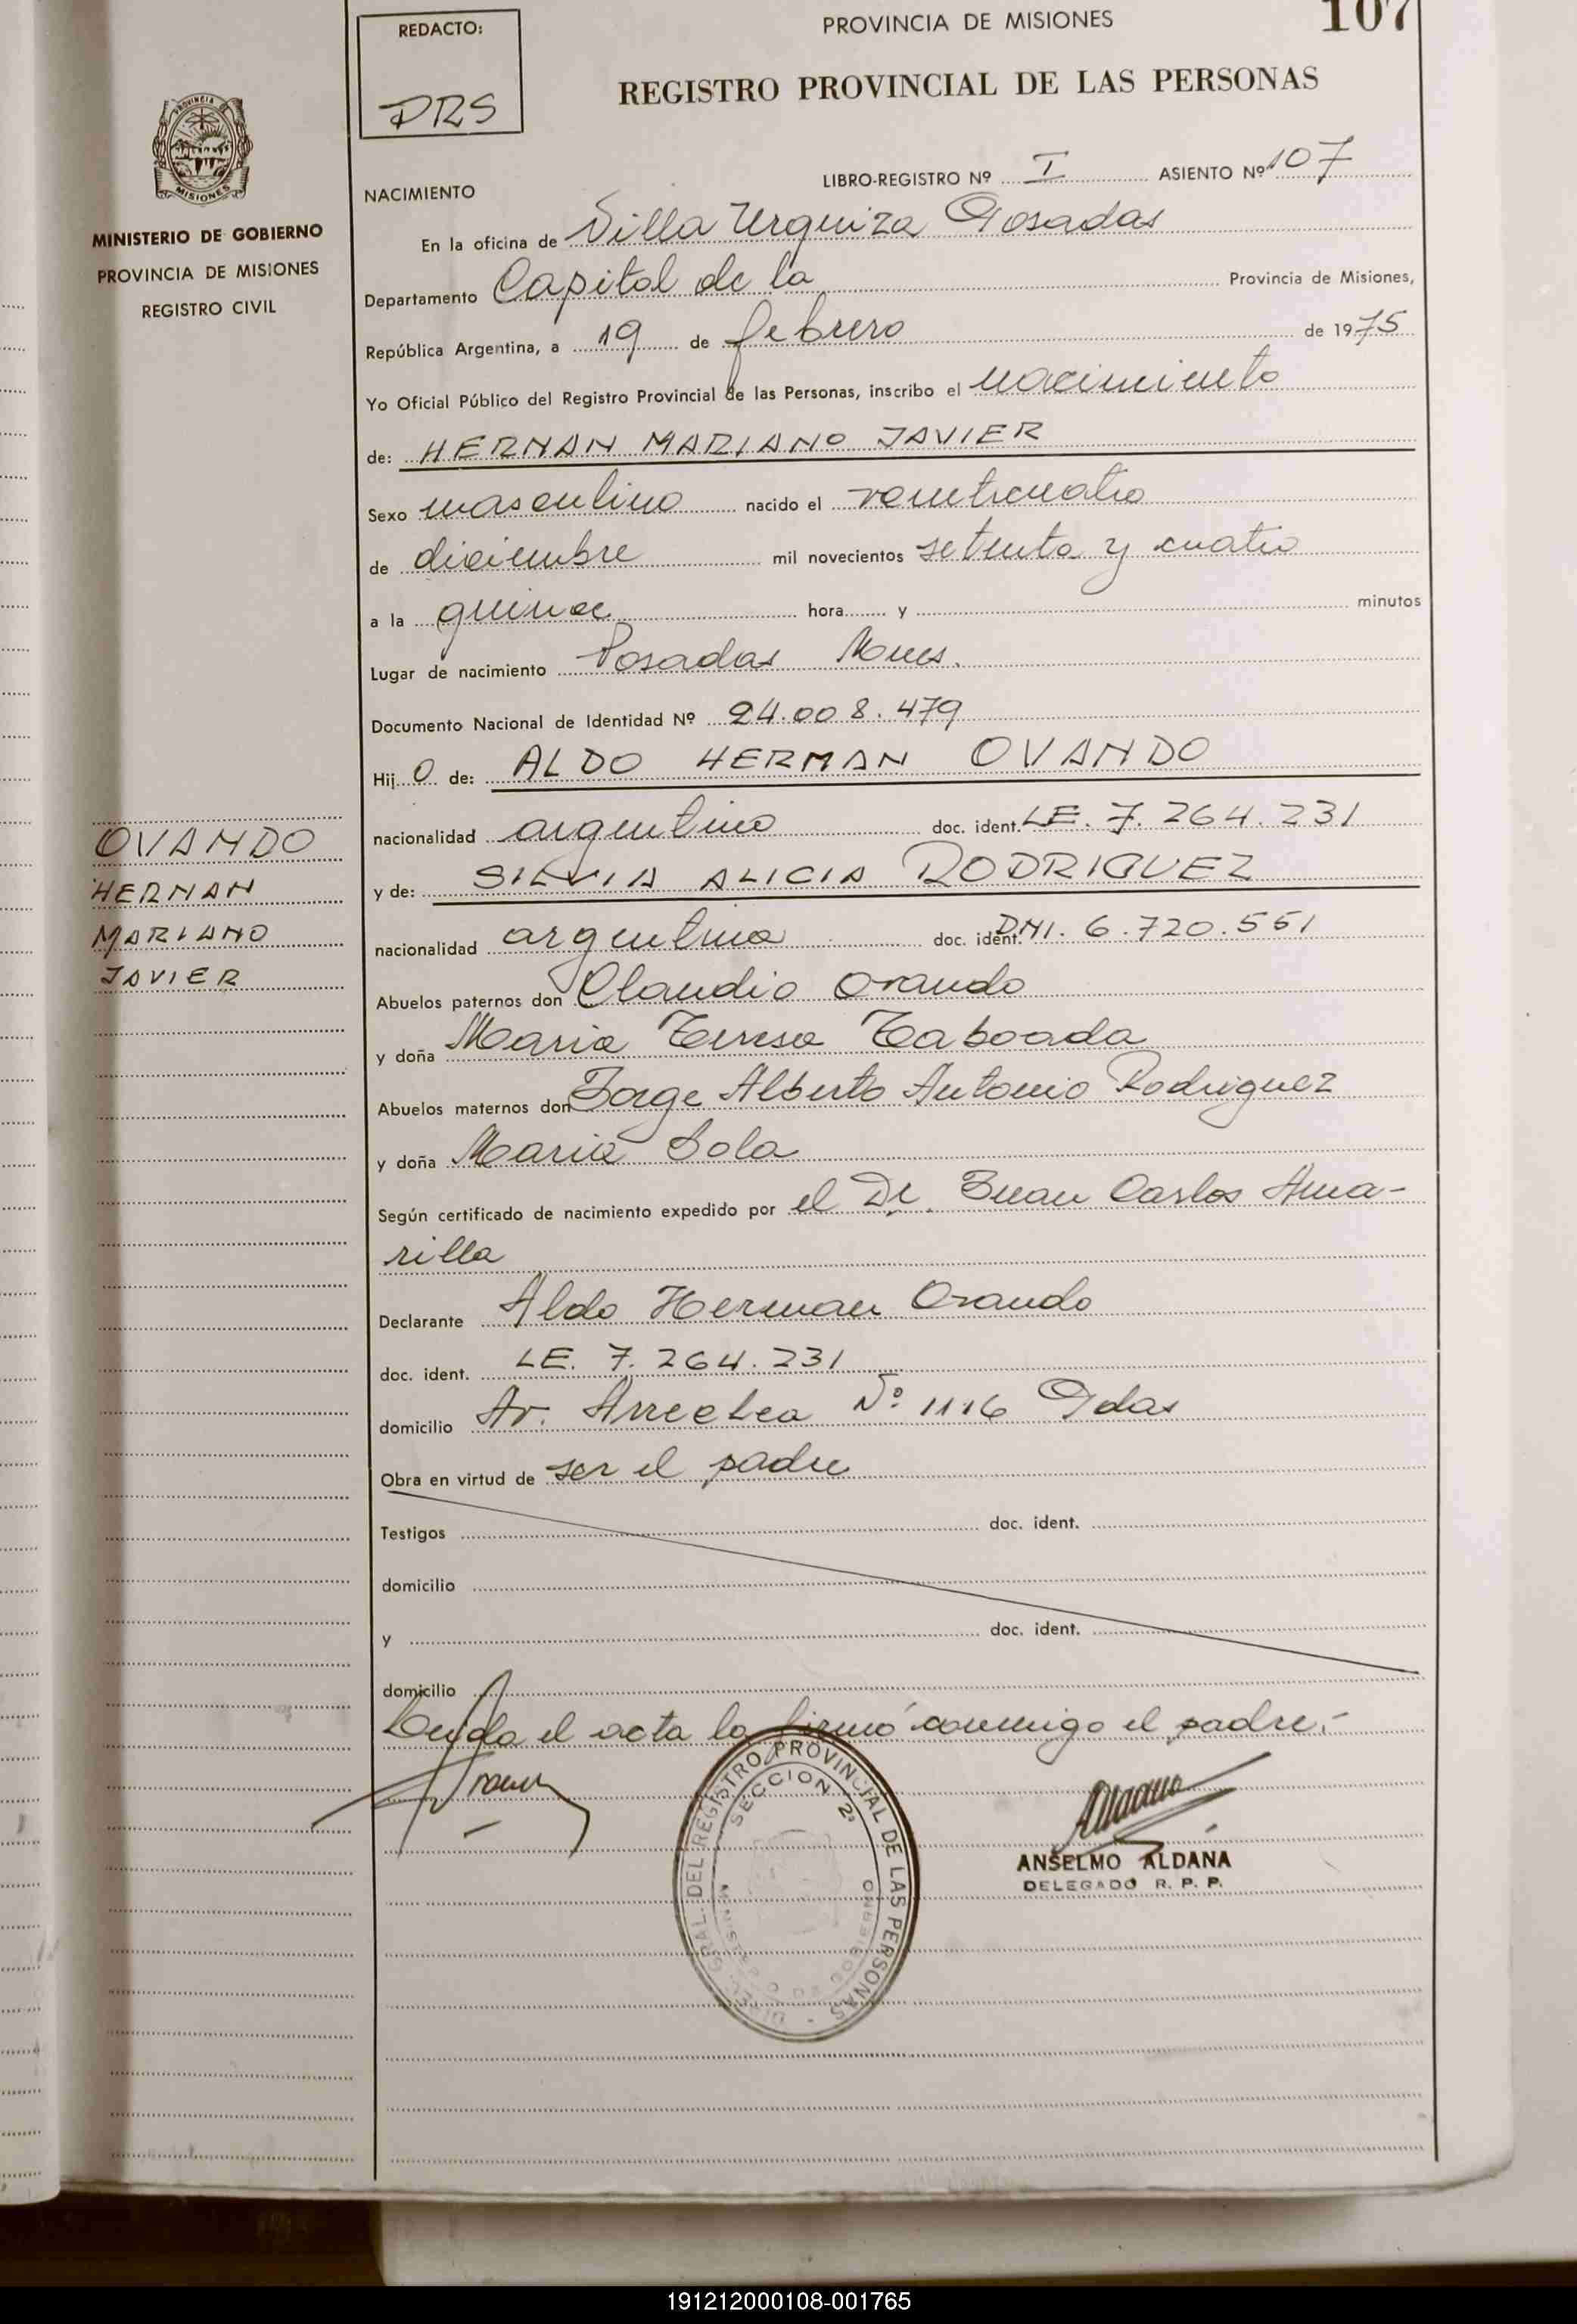 REDACTO:
DRS
PROVINCIA DE MISIONES
107
REGISTRO PROVINCIAL DE LAS PERSONAS
PROVINCIA DE
MISIONES
MINISTERIO DE GOBIERNO
PROVINCIA DE MISIONES
REGISTRO CIVIL
NACIMIENTO
LIBRO-REGISTRO Nº I ASIENTO Nº 107
En la oficina de Villa Urquiza Posadas
Departamento Capital de la Provincia de Misiones,
República Argentina, a 19 de febrero de 1975
Yo Oficial Público del Registro Provincial de las Personas, inscribo el nacimiento
de: HERNAN MARIANO JAVIER
Sexo masculino nacido el veinticuatro
de diciembre mil novecientos setenta y cuatro
a la quince hora y minutos
Lugar de nacimiento Posadas Mnes.
Documento Nacional de Identidad Nº 24.008.479
Hij o de: ALDO HERMAN OVANDO
nacionalidad argentino doc. ident. LE. 7.264.231
y de: SILVIA ALICIA RODRIGUEZ
nacionalidad argentina doc. ident. DNI. 6.720.551
OVANDO
HERNAN
MARIANO
JAVIER
Abuelos paternos don Claudio Ovando
y doña Maria Teresa Taboada
Abuelos maternos don Jorge Alberto Antonio Rodriguez
y doña Maria Sola
Según certificado de nacimiento expedido por el Dr. Juan Carlos Ama-
rilla
Declarante Aldo Herman Ovando
doc. ident. LE. 7.264.231
domicilio Av. Arrechea Nº 1116 Pdas
Obra en virtud de ser el padre
Testigos doc. ident.
domicilio
y doc. ident.
domicilio
Leida el acta la firmó conmigo el padre.-
DIREC. GRAL. DEL REGISTRO PROVINCIAL DE LAS PERSONAS
SECCION 2ª
ANSELMO ALDANA
DELEGADO R. P. P.
191212000108-001765